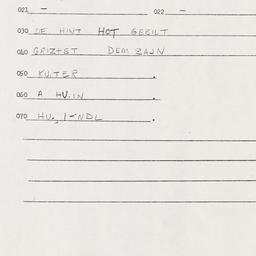 021 – 022 –
030 DE HINT HOT GEBILT
040 GRIZ+ST DEM BAJN
050 KU.TER .
060 A HU.IN .
070 HU., I–NDL .